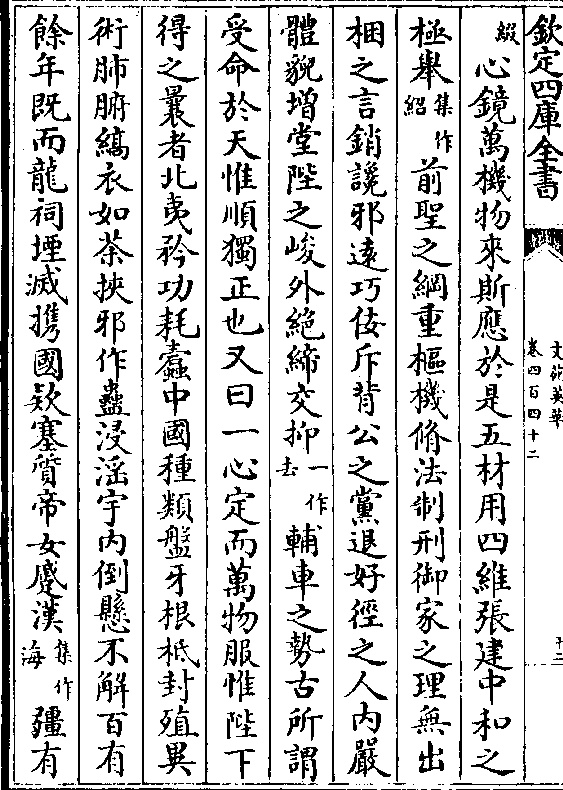 欽定四庫全書
文苑英華
卷四百四十二
十二
綴心鏡萬機物來斯應於是五材用四維張建中和之
極舉集作紹前聖之綱重樞機脩法制刑御家之理無出
梱之言銷讒邪遠巧佞斥背公之黨退好徑之人內嚴
體貌增堂陛之峻外絶締交抑一作去輔車之勢古所謂
受命於天惟順獨正也又曰一心定而萬物服惟陛下
得之曩者北夷矜功耗蠧中國種類盤牙根柢封殖異
術肺腑縞衣如荼挾邪作蠱浸淫宇内倒懸不解百有
餘年既而龍祠堙滅攜國欵塞質帝女蹙漢集作海疆有